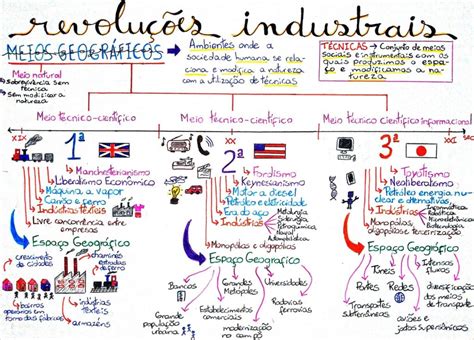 revoluções industrais
MEIOS GEOGRÁFICOS
Ambientes onde a
sociedade humana se rela-
ciona e modifica a natureza
com a utilização de técnicas.
TÉCNICAS → Conjunto de meios
sociais e instrumentais com os
quais produzimos o espa-
ço e modificamos a na-
tureza
Meio natural
sobrevivência sem
técnica
sem modificar a
natureza
Meio técnico-científico
Meio técnico-científico
Meio técnico científico informacional
XIX
XX
XXI
SEC
1ª
Manchesterianismo
Liberalismo Econômico
Máquina a vapor
Carvão e ferro
Indústrias têxteis
Livre concorrência entre
empresas
Espaço Geográfico
crescimento
de cidades
chaminés
enfeitadas
de ferro
bairros
operários em
torno das fábricas
indústrias
têxteis
armazéns
2ª
Fordismo
Keynesianismo
Motor a diesel
Petróleo e eletricidade
Era do aço
Indústrias
Metalurgia
Siderurgia
Petroquímica
Naval
Automobilística
Monopólios e oligopólios
Espaço Geografico
Bancos
Grandes
Metrópoles
Universidades
Grande
população
urbana
Estabelecimentos
comerciais
Rodovias
ferrovias
modernização
no campo
3ª
Toyotismo
Neoliberalismo
Petróleo, energia nu-
clear e alternativas
Indústrias
Informática
Robótica
Microeletrônica
Aeroespacial
Biotecnologia
Monopólios,
oligopólios e terceirização
Espaço Geográfico
Tineis
Pontes
Redes
Intensos
fluxos
Transportes
subterrâneos
diversificação
dos meios de
transporte
aviões e
jardos supersônicos